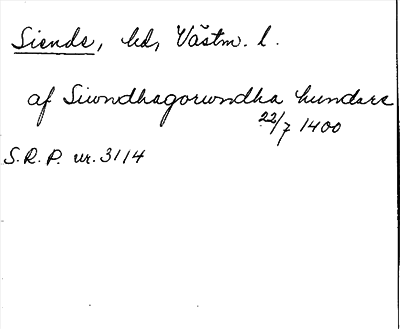 Siende, hd, Västm. l.
af Siwndhagorwndha hundare
22/7 1400
S.R.P. nr. 3114